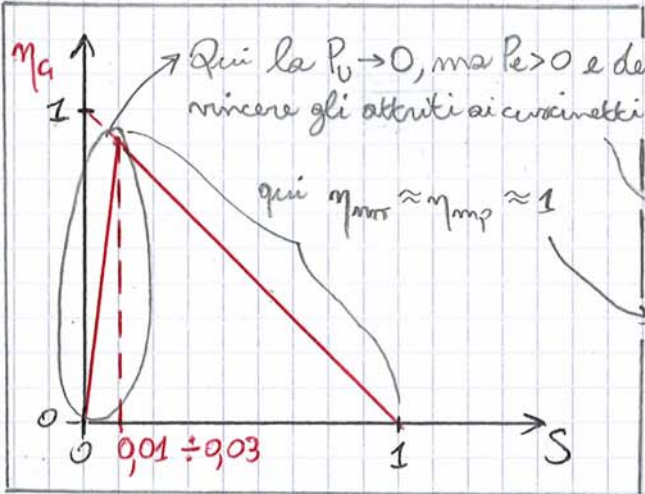 η_G
Qui la P_U → 0, ma P_e > 0 e de
vincere gli attriti ai cuscinetti
1
qui η_mT ≈ η_mp ≈ 1
0
0
0,01 ÷ 0,03
1
S